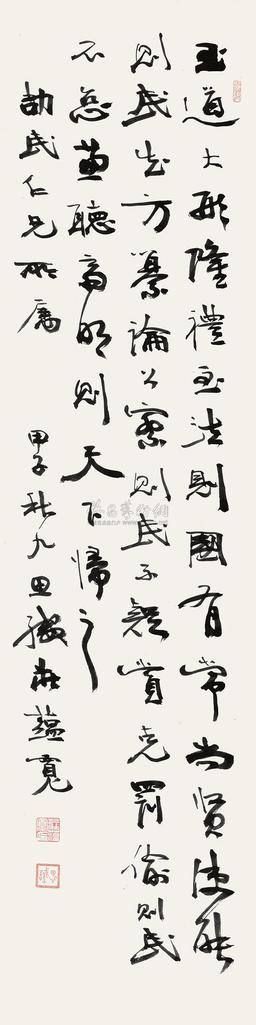 至道大形隆禮至法則國有常尚賢使能
則民知方纂論公察則民不疑賞克罰偷則民
不怠兼聽齊明則天下歸之
劼民仁兄所屬 甲子秋九思緘莊蘊寬